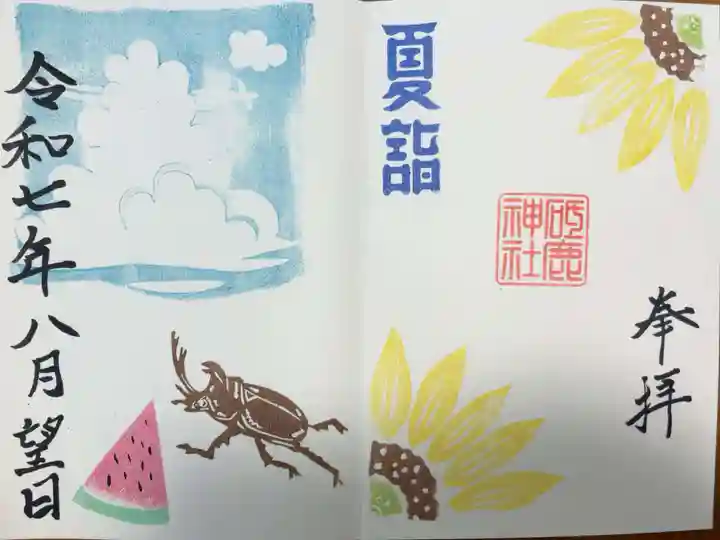 奉拝
夏詣
砥鹿
神社
令和七年八月望日